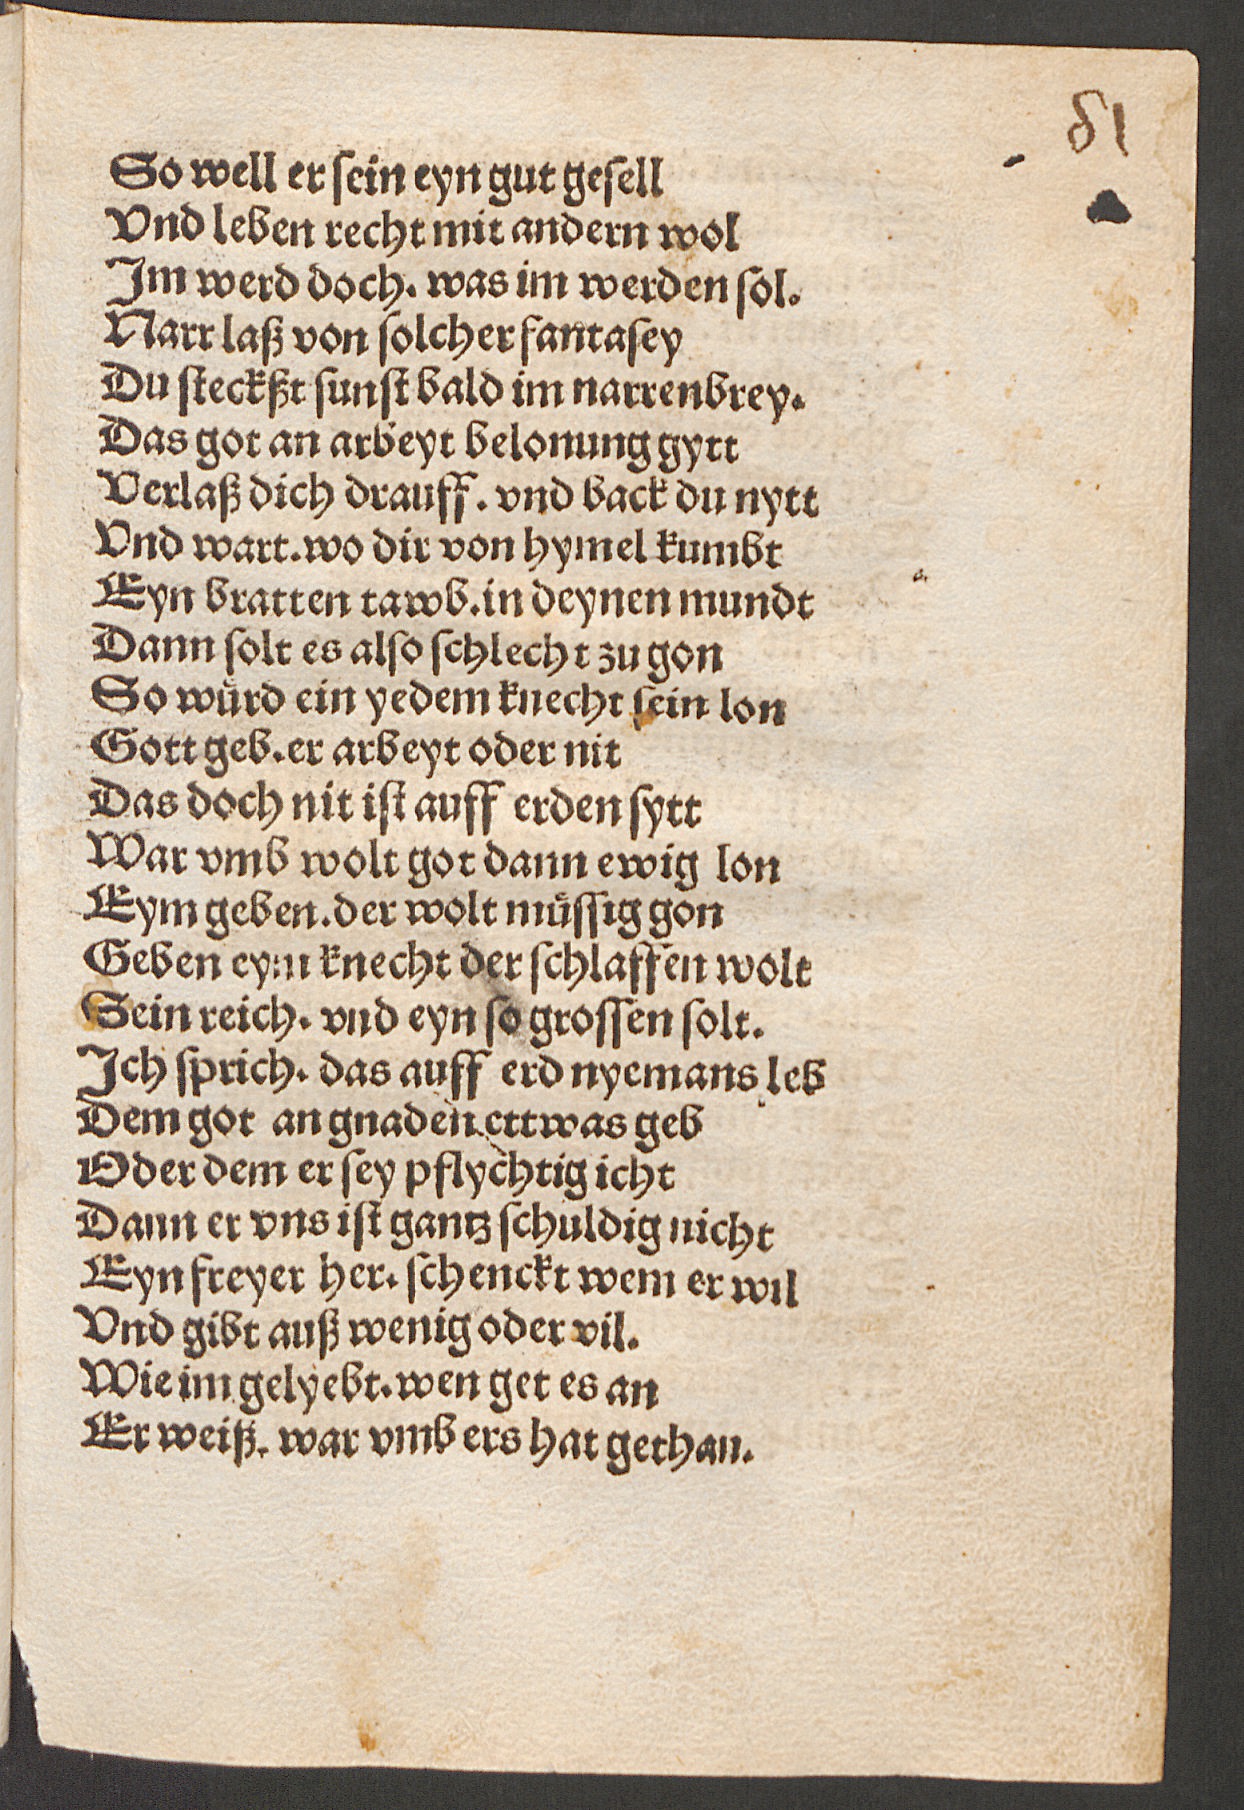 81
So well er ſein eyn gut geſell
Vnd leben recht mit andern wol
Im werd doch. was im werden ſol.
Narr laß von ſolcher fantaſey
Du ſteckßt ſunſt bald im narrenbrey.
Das got an arbeyt belonung gytt
Verlaß dich drauff. vnd back du nytt
Vnd wart. wo dir von hymel kumbt
Eyn bratten tawb. in deynen mundt
Dann ſolt es alſo ſchlecht zu gon
So wuͤrd ein yedem knecht ſein lon
Gott geb. er arbeyt oder nit
Das doch nit iſt auff erden ſytt
War vmb wolt got dann ewig lon
Eym geben. der wolt muͤſſig gon
Geben eym knecht der ſchlaffen wolt
Sein reich. vnd eyn ſo groſſen ſolt.
Ich ſprich. das auff erd nyemans leb
Dem got an gnaden ettwas geb
Oder dem er ſey pflychtig icht
Dann er vns iſt gantz ſchuldig nicht
Eyn freyer her. ſchenckt wem er wil
Vnd gibt auß wenig oder vil.
Wie im gelyebt. wen get es an
Er weiß. war vmb ers hat gethan.